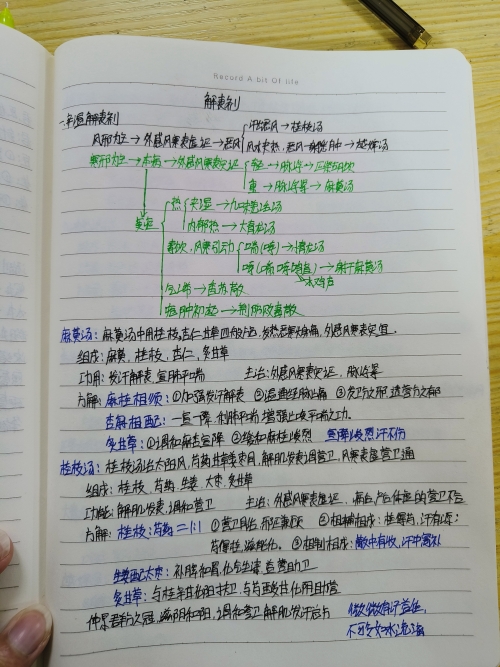 Record A bit Of life
解表剂
一.辛温解表剂
汗出恶风→桂枝汤
风邪为主→外感风寒表虚证→恶风
寒邪为主→本病→外感风寒表实证
脉浮
重→脉浮紧→麻黄汤
兼证
热
夹湿→九味羌活汤
内郁热→大青龙汤
素饮,风寒引动
喘(喘)→小青龙汤
→射干麻黄汤
水鸡声
→香苏散
疮肿初起→荆防败毒散
麻黄汤:麻黄汤中用桂枝,杏仁甘草四般施,发热恶寒头项痛,外感风寒表实宜.
组成:麻黄、桂枝、杏仁、炙甘草
功用:发汗解表,宣肺平喘 主治:外感风寒表实证,脉浮紧
方解:麻桂相须:①加强发汗解表 ②温通经脉止痛 ③发卫分之邪,透营分之郁
杏麻相配:一宣一降,利肺平喘,增强止咳平喘之功.
炙甘草:①调和麻杏宣降 ②缓和麻桂峻烈
桂枝汤:桂枝汤治太阳风,芍药甘草姜枣同,解肌发表调营卫,风寒表虚营卫通
组成:桂枝、芍药、生姜、大枣、炙甘草
功效:解肌发表,调和营卫 主治:外感风寒表虚证,病后产后体虚的营卫不合
方解:桂枝:芍药=1:1 ①营卫同治,邪正兼顾 ②相辅相成:桂得芍,汗有源;
芍得桂,滋能化. ③相制相成:散中有收,汗中寓补
生姜配大枣:补脾和胃,化气生津,益营助卫
炙甘草:与桂辛甘化阳扶卫,与芍酸甘化阴助营
仲景群方之冠,滋阴和阳,调和营卫,解肌发汗总方
微微有汗益佳,
不可如水流漓